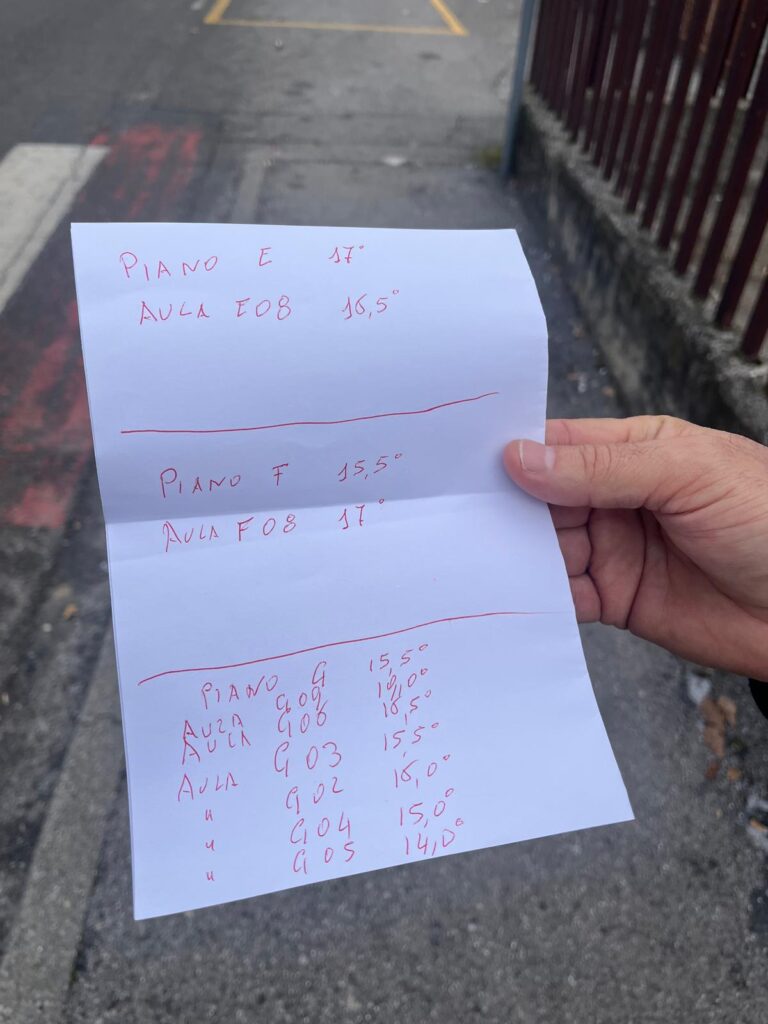 PIANO E 17°
AULA E08 16,5°
PIANO F 15,5°
AULA F08 17°
PIANO G 15,5°
AULA G09
AULA G06 16,5°
AULA G03 15,5°
" G02 16,0°
" G04 15,0°
" G05 14,0°